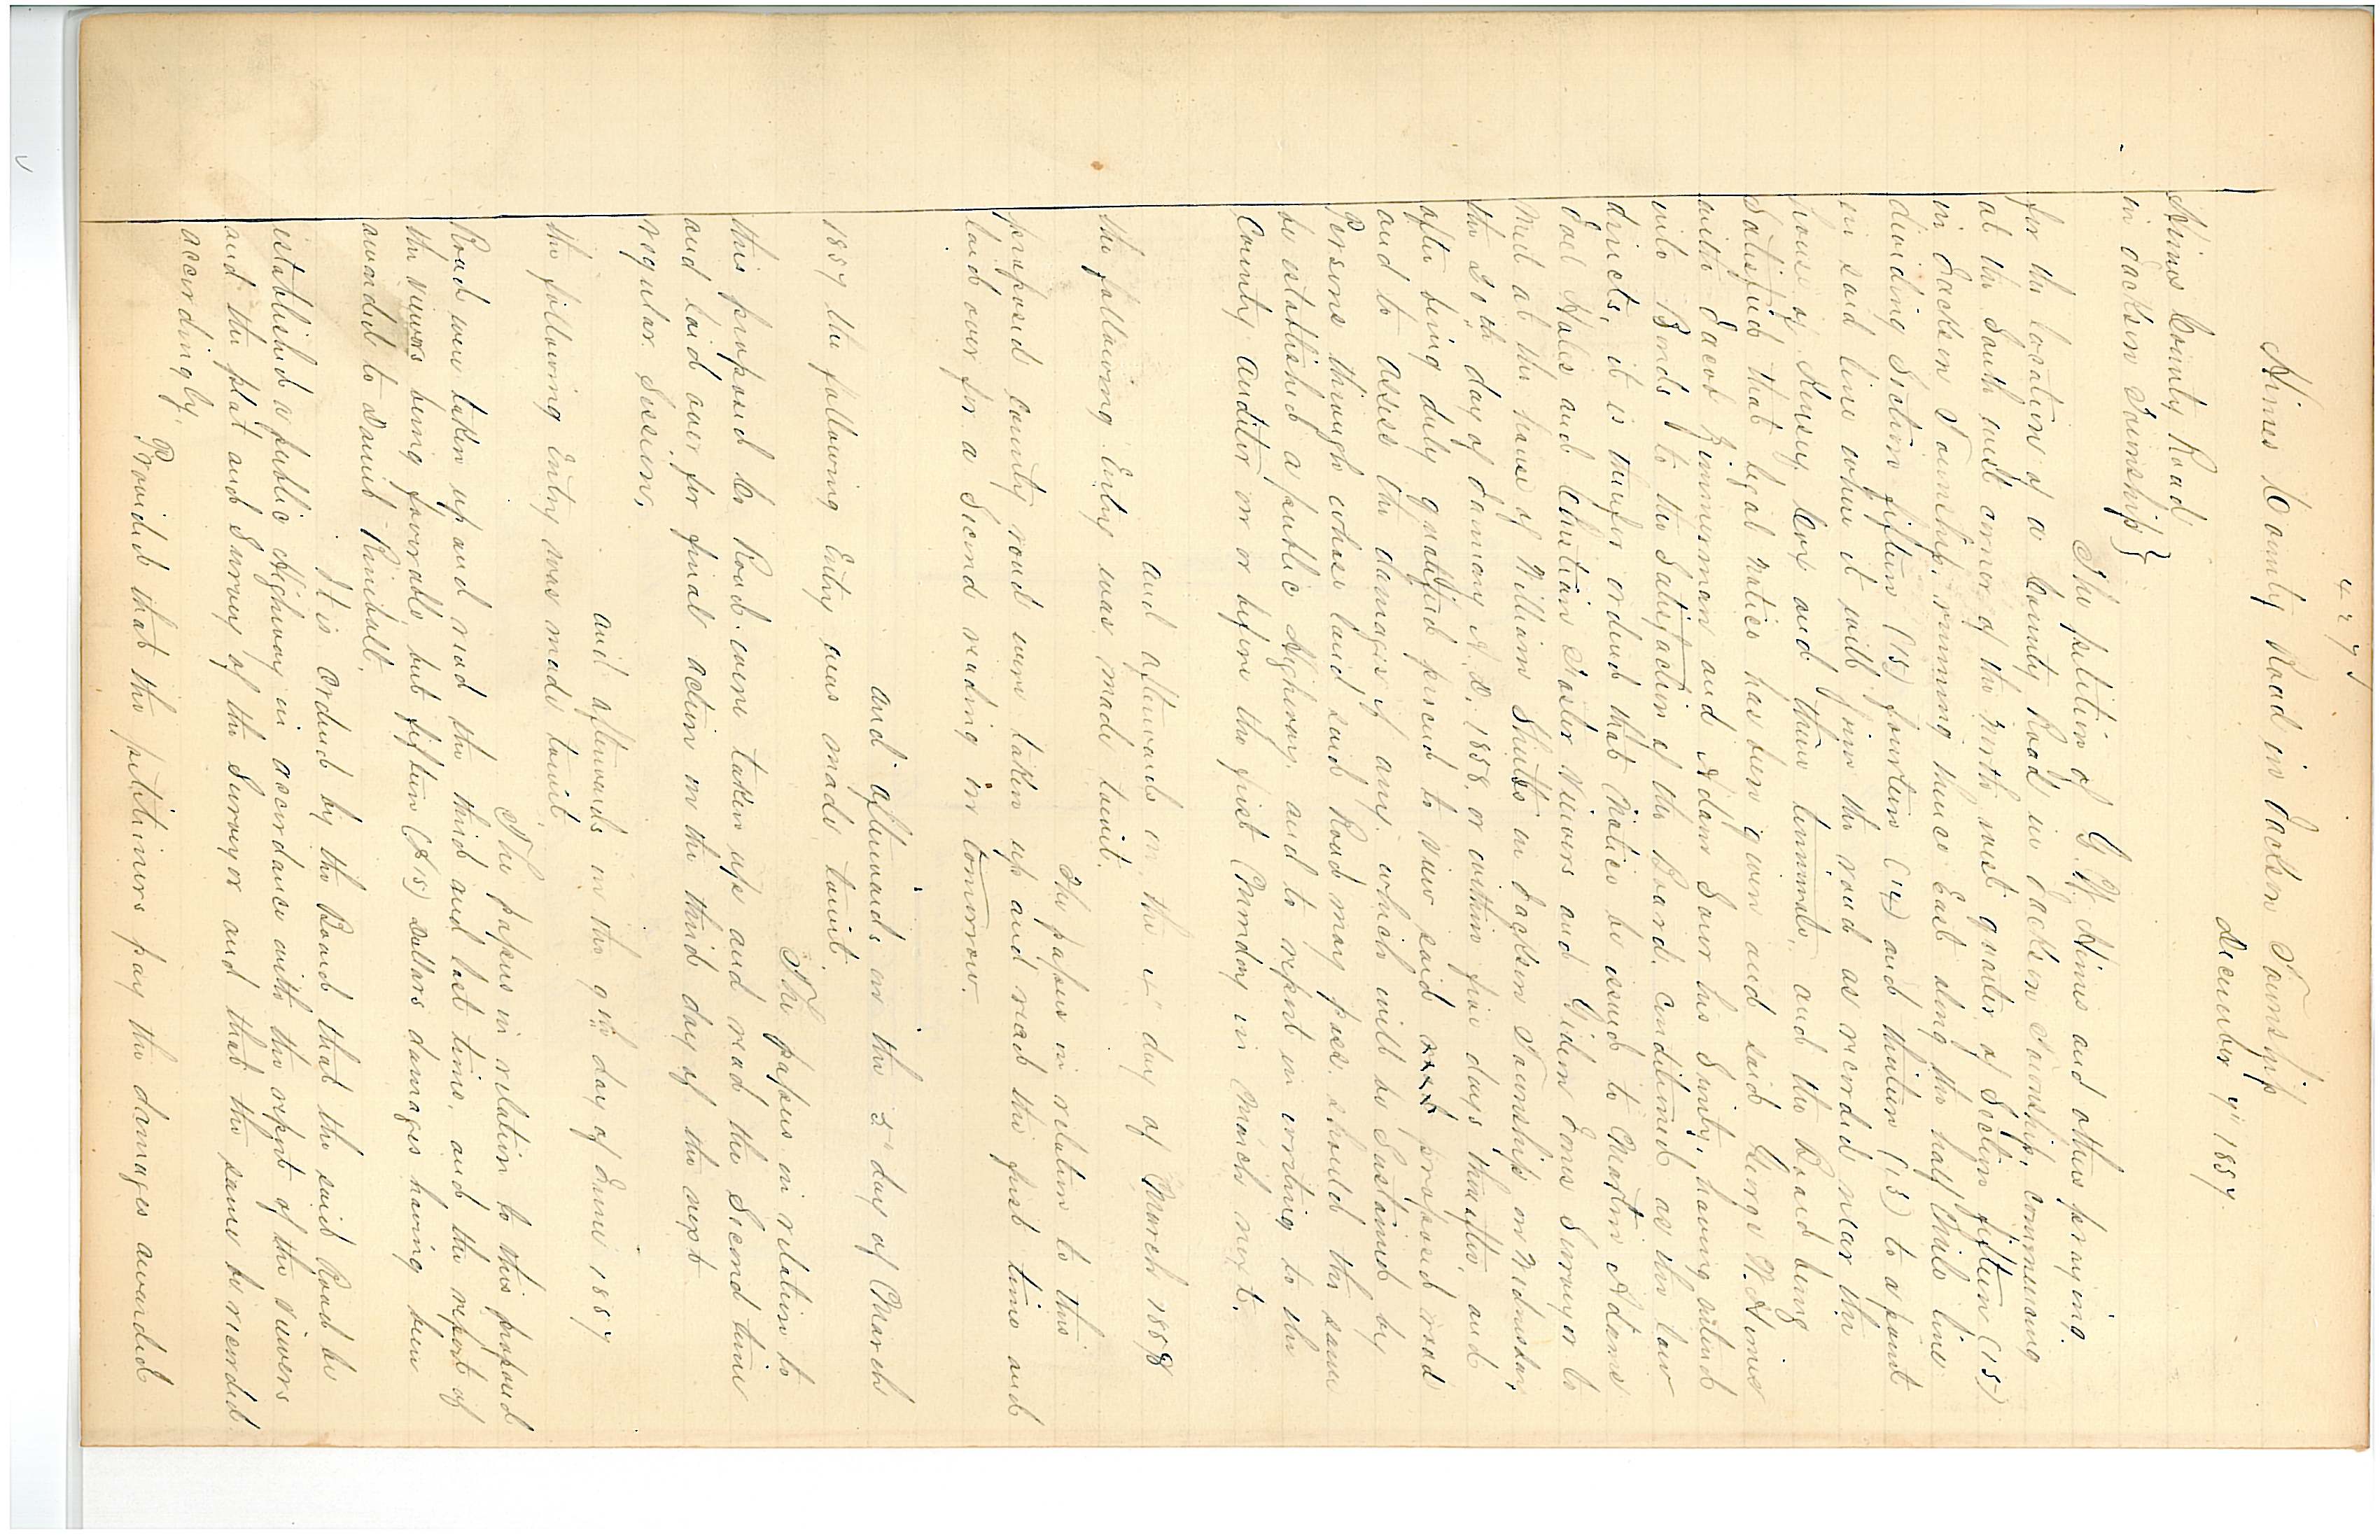 4275
Himes County Road in Jackson Township
December 7" 1857
Himes County Road
in Jackson Township }
The petition of G. W. Himes and others praying
for the location of a County Road in Jackson Township, Commencing
at the South west corner of the North west quarter of Section fifteen (15)
in Jackson Township, running thence East along the half Mile line
dividing Section fifteen (15) fourteen (14) and thirteen (13) to a point
in said line where it will join the road as recorded near the
house of Cox and there terminate, and the Board being
Satisfied that legal notice has been given and said George W. Himes
with Jacob Zimmerman and Adam Saur his Surity, having entered
into Bonds to the Satisfaction of the Board. Conditioned as the law
directs, it is therefor ordered that Notice be issued to Martin Adams
Joel Hales and Christian Foster Viewers and Giden Jones Surveyor to
Meet at the house of William Shults in Jackson Township on Wednesday,
the 20th day of January A.D. 1858, or within five days thereafter, and
after being duly qualified proceed to view said xxxx proposed road
and to assess the damages if any. which will be Sustained by
Persons through whose land said Road may pass should the same
be established a public Highway and to report in writing to the
County Auditor on or before the first Monday in March next.
and afterwards on the 4" day of March 1858
the following Entry was made towit.
The papers in relation to this
proposed county road were taken up and read the first time and
laid over for a Second reading on tomorrow.
and afterwards on the 5" day of March
1857 the following Entry was made towit
The papers in relation to
this proposed Co Road were taken up and read the Second time
and laid over for final action on the third day of the next
regular Session.
and afterwards on the 9th day of June 1857
the following Entry was made towit
The papers in relation to this proposed
Road were taken up and read the third and last time, and the report of
the viewers being favorable but fifteen ($15) Dollars damages having been
awarded to David
It is ordered by the Board that the said Road be
established a public Highway in accordance with the report of the viewers
and the plat and Survey of the Surveyor and that the same be recorded
accordingly,
Provided that the petitioners pay the damages awarded